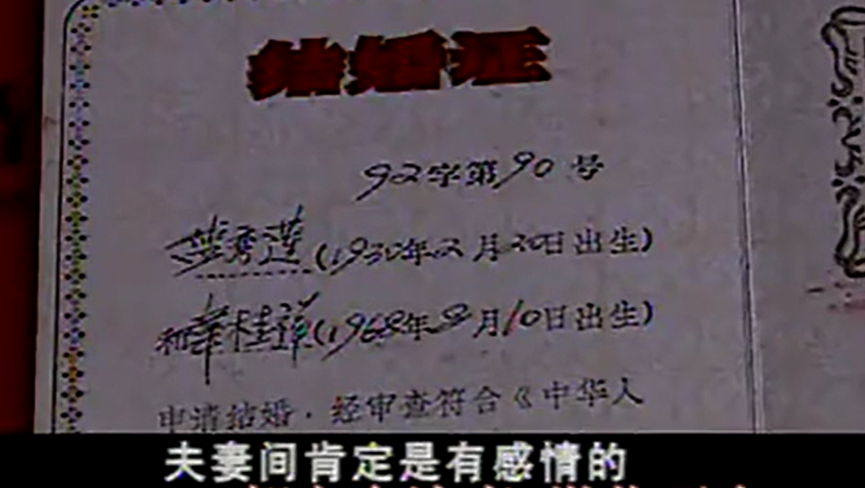 结婚证
92字第90号
秀莲(1930年2月20日出生)
和 桂萍(1968年8月10日出生)
申请结婚，经审查符合《中华人
夫妻间肯定是有感情的